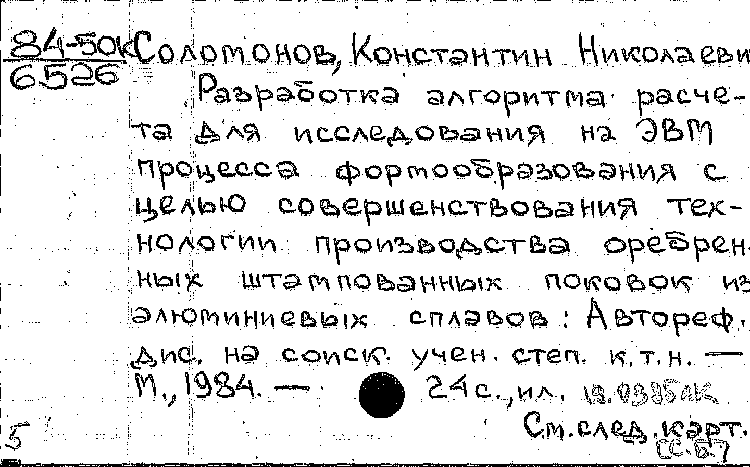 84-50к Соломонов, Константин Николаеви
6526
Разработка алгоритма расче-
та для исследования на ЭВМ
процесса формообразования с
целью совершенствования тех-
нологии производства оребрен-
ных штампованных поковок из
алюминиевых сплавов: Автореф.
дис. на соиск. учен. степ. к.т.н. —
М., 1984. — 24 с., ил.
См. след. карт.
5